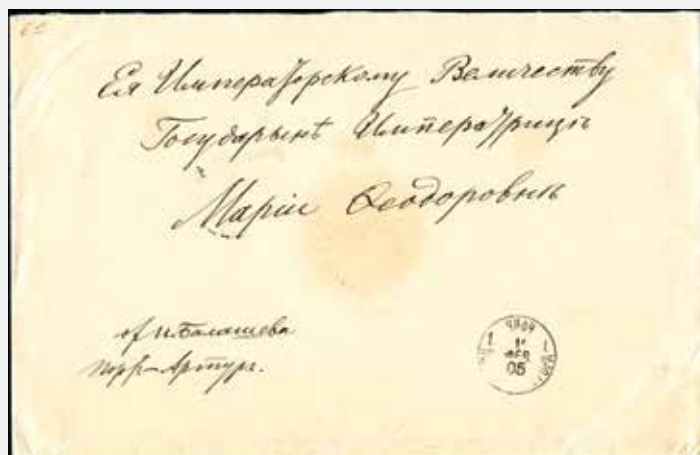 Ея Императорскому Величеству
Государынѣ Императрицѣ
Маріи Ѳеодоровнѣ
от И. Балашева
Порт-Артур.
1
11
ФЕВ
05
1